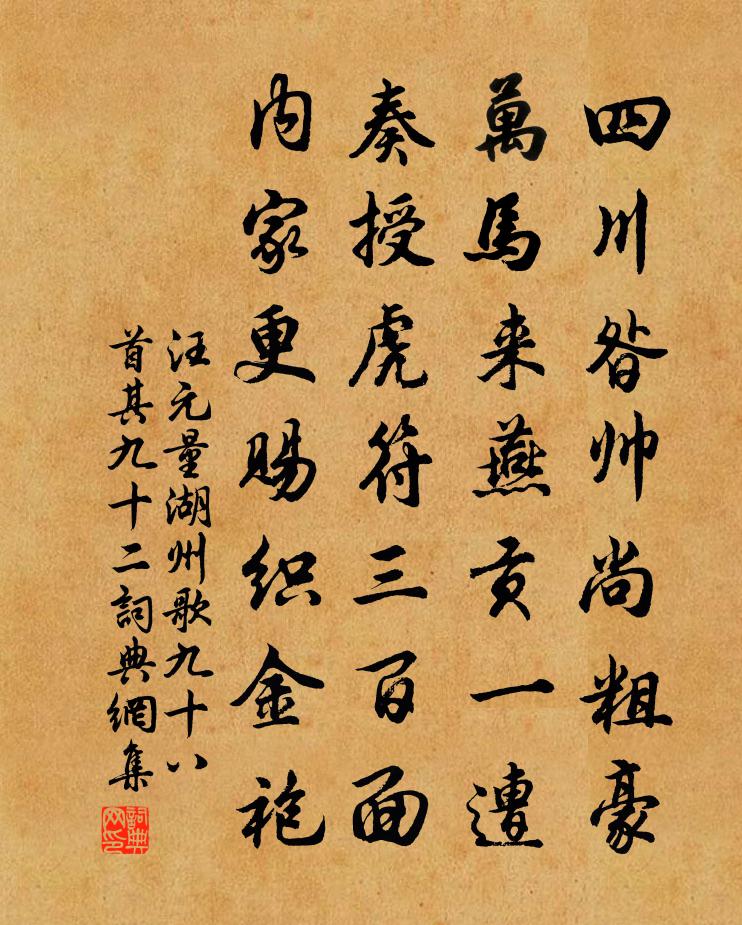 四川昝帅尚粗豪
萬馬来燕貢一遭
奏授虎符三百面
内家更賜织金袍
汪元量湖州歌九十八
首其九十二詞典網集
詞典
网印